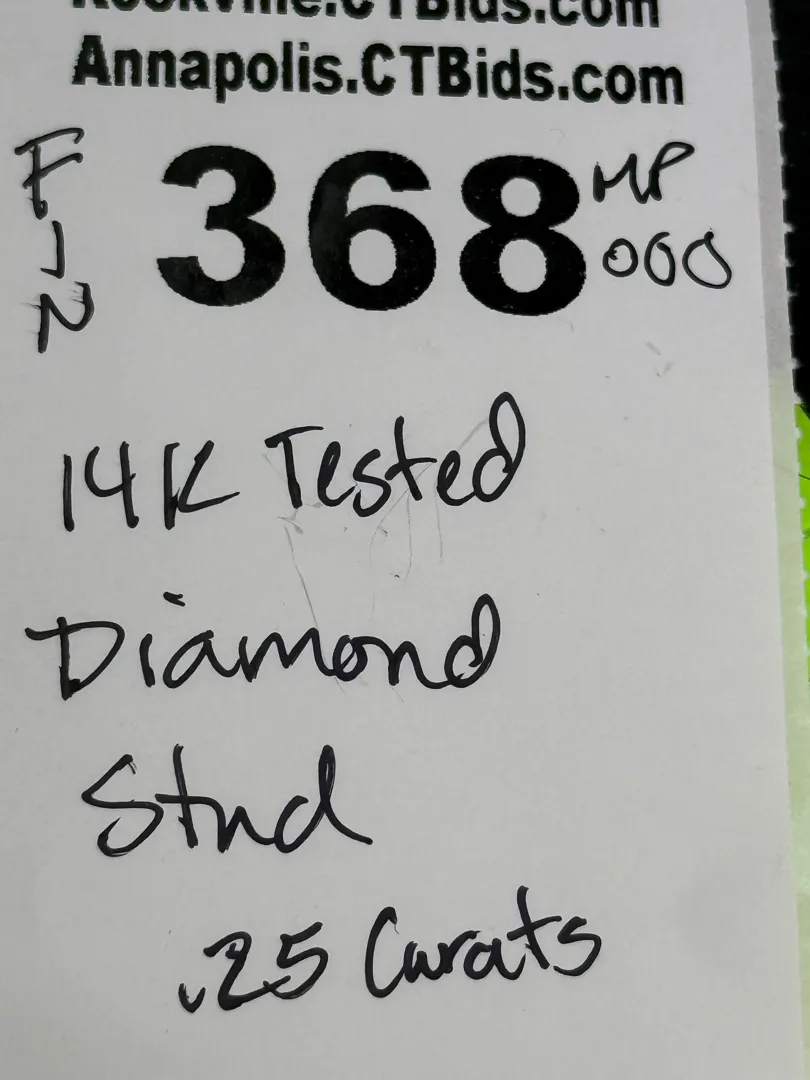 Rockville.CTBids.com
Annapolis.CTBids.com
FIN
368
MP
000
14K Tested
Diamond
Stud
.25 Carats